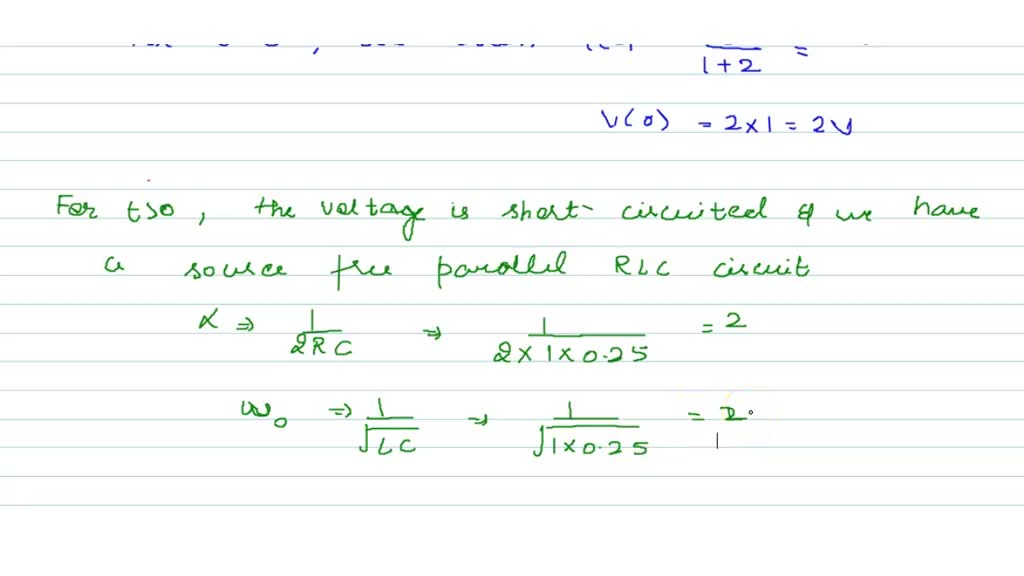 1+2 =
V(0) = 2×1 = 2V
For t>0, the voltage is short-circuited & we have
a source free parallel RLC circuit
α ⇒ 1/2RC ⇒ 1/2×1×0.25 = 2
ω₀ ⇒ 1/√LC ⇒ 1/√1×0.25 = 2